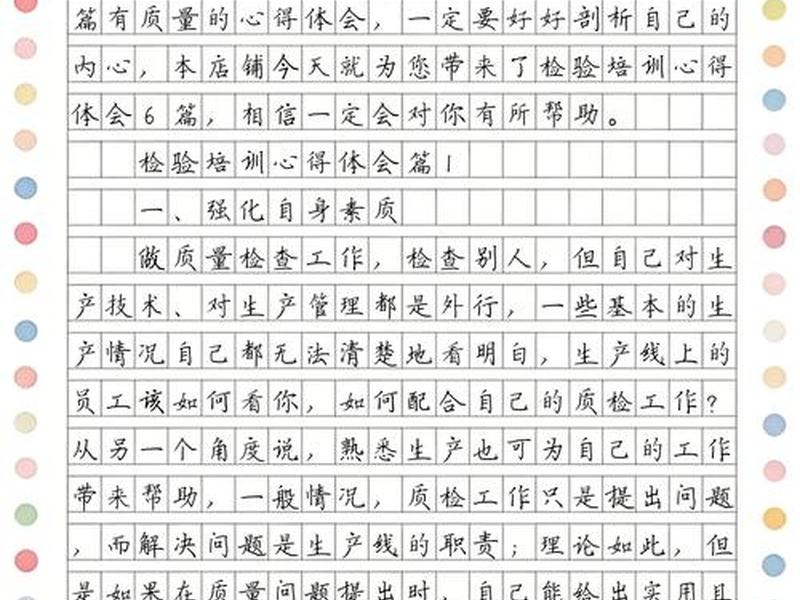 篇有质量的心得体会，一定要好好剖析自己的
内心，本店铺今天就为您带来了检验培训心得
体会6篇，相信一定会对你有所帮助。
检验培训心得体会篇1
一、强化自身素质
做质量检查工作，检查别人，但自己对生
产技术、对生产管理都是外行，一些基本的生
产情况自己都无法清楚地看明白，生产线上的
员工该如何看你，如何配合自己的质检工作？
从另一个角度说，熟悉生产也可为自己的工作
带来帮助，一般情况，质检工作只是提出问题
，而解决问题是生产线的职责；理论如此，但
是如果在质量问题提出时，自己能给出实用且